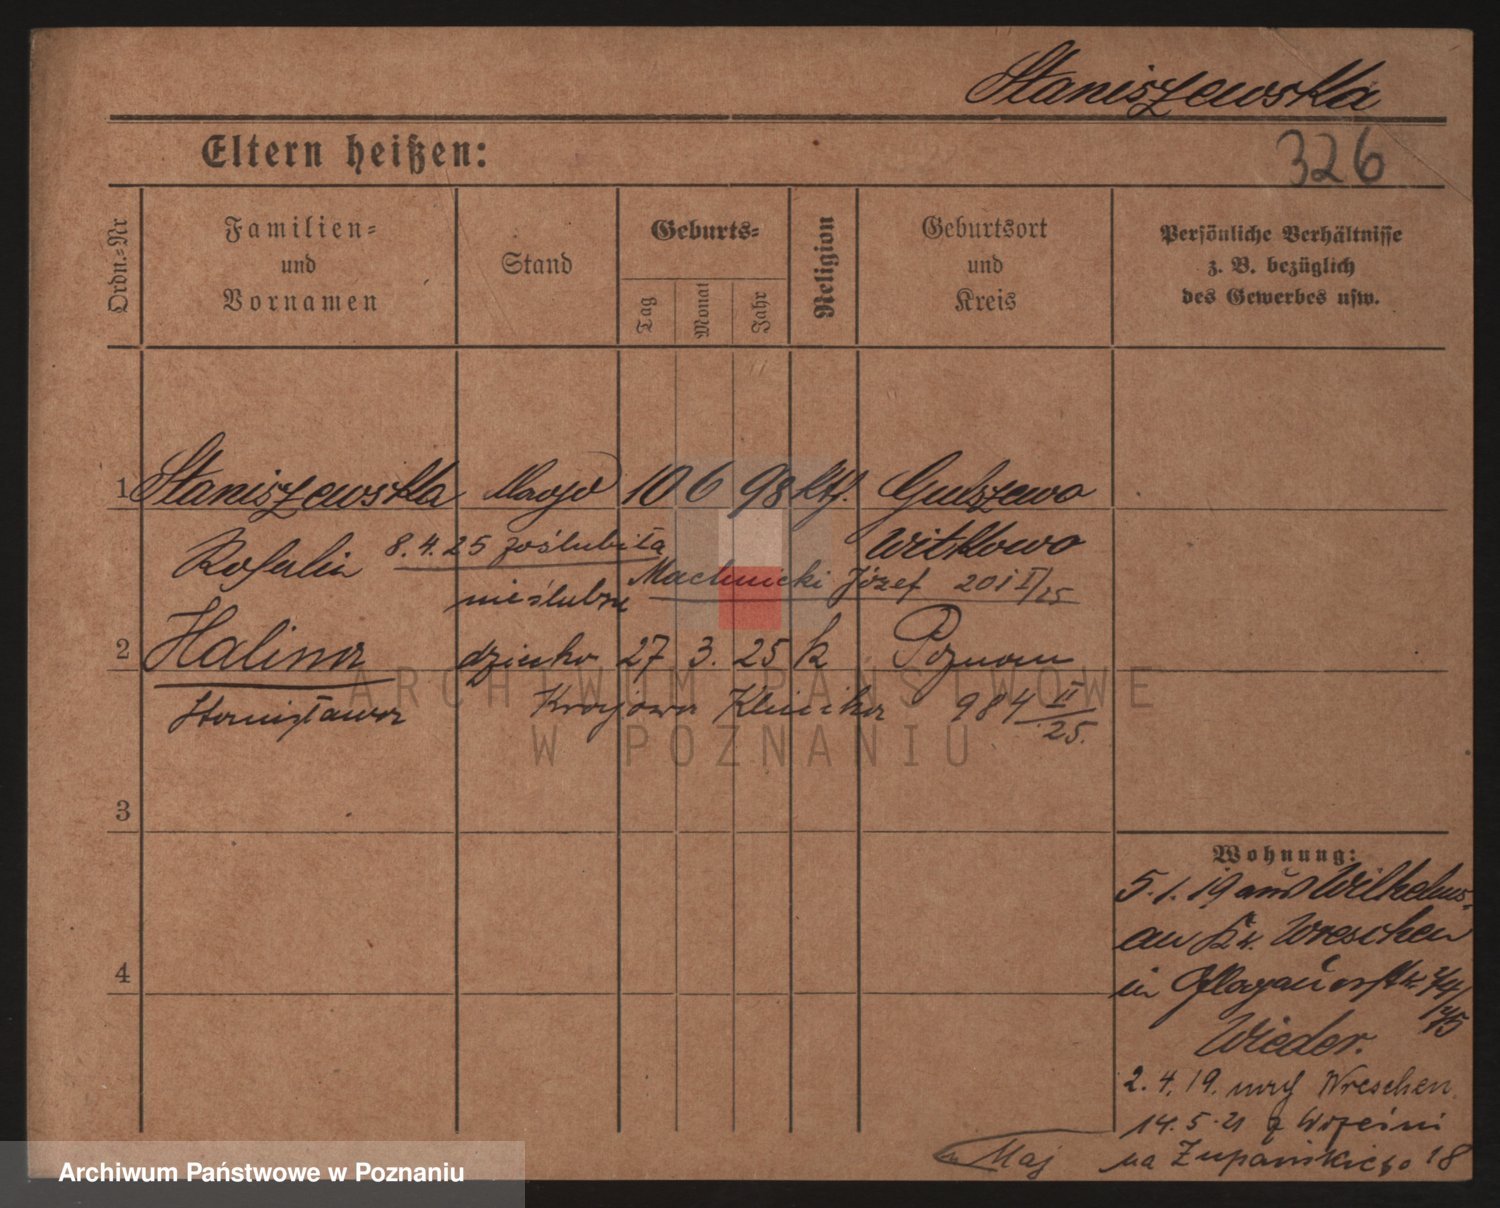 Staniszewska
Eltern heißen:
326
Ordn.=Nr
Familien=
und
Vornamen
Stand
Geburts=
Tag
Monat
Jahr
Religion
Geburtsort
und
Kreis
Persönliche Verhältnisse
z. B. bezüglich
des Gewerbes usw.
1 Staniszewska Magd 10 6 98 kth. Gulszewo
Rosalia 8.4.25 zaślubiła Witkowo
Machnicki Józef 201 I/25
nieślubne
2 Halina dziecko 27 3. 25 k Poznań
Stanisława Krajowa Klinika 984 II/25.
3
4
Wohnung:
5.1.19 aus Wilhelms-
au Kr. Wreschen
in Glogauerstr. 74/
75
Wieder.
2.4.19. nach Wreschen
14.5.21 z Wrześni
na Żupańskiego 18
Maj
ARCHIWUM PAŃSTWOWE
W POZNANIU
Archiwum Państwowe w Poznaniu